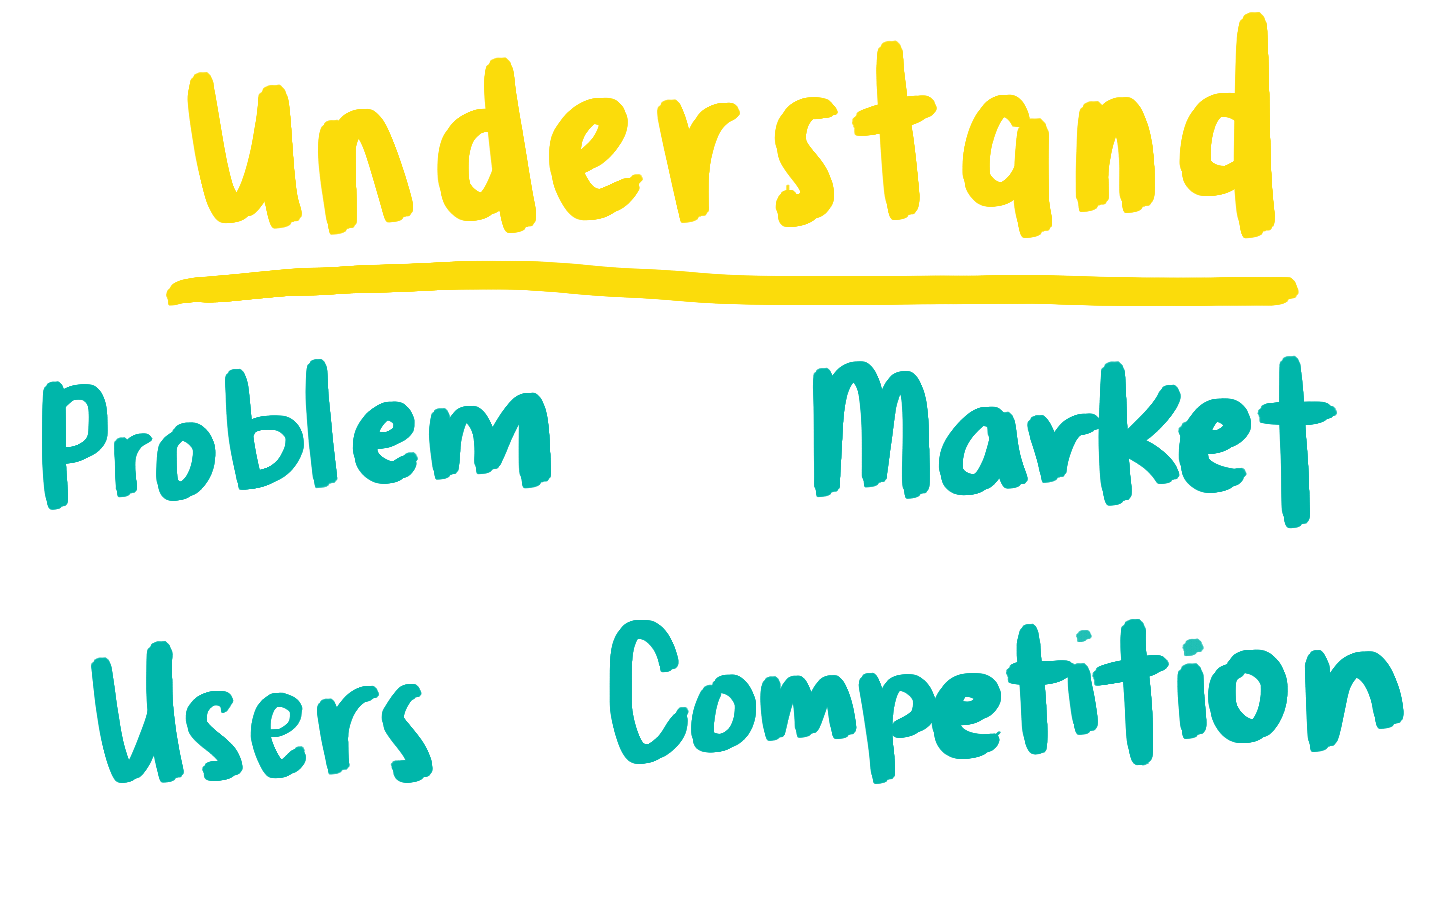 Understand
Problem Market
Users Competition